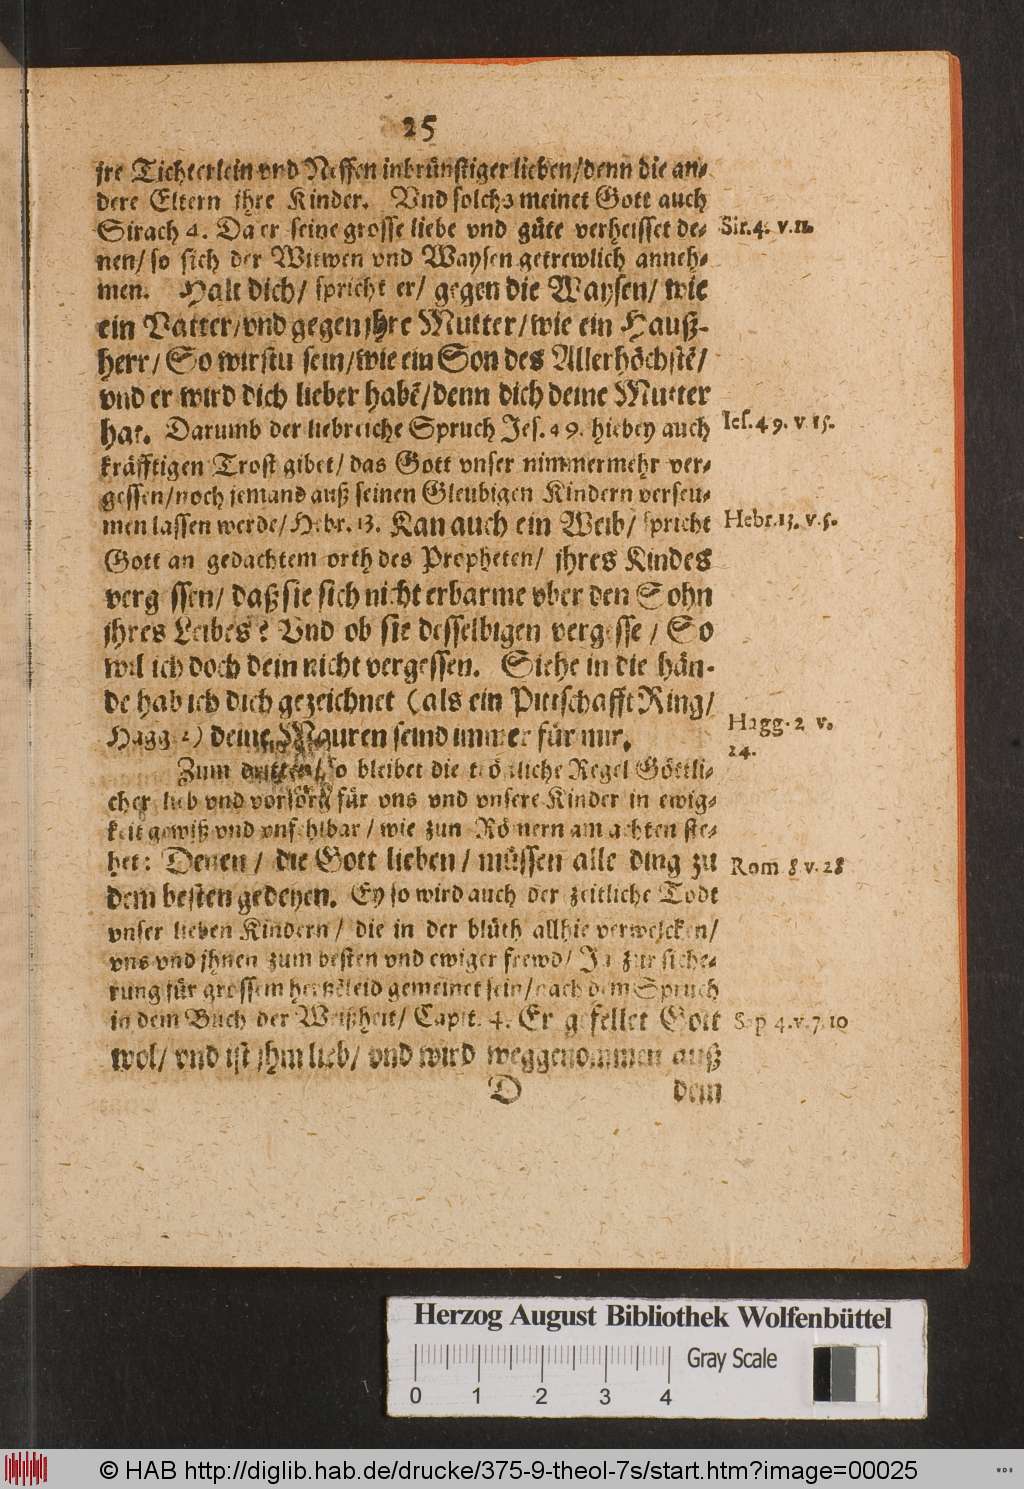 25
jre Tichterlein vnd Neffen inbrünstiger lieben/denn die an-
dere Eltern ihre Kinder. Vnd solchs meinet Gott auch
Sirach 4. Da er seine grosse liebe vnd güte verheisset de- Sir. 4. v. 11.
nen/ so sich der Witwen vnd Waysen getrewlich anneh-
men. Halt dich/ spricht er/ gegen die Waysen/ wie
ein Vatter/vnd gegen jhre Mutter/wie ein Hauß-
herr/ So wirstu sein/wie ein Son des Allerhöchstẽ/
vnd er wird dich lieber habẽ/denn dich deine Mutter
hat. Darumb der liebreiche Spruch Jes. 49. hiebey auch Ies. 49. v 15.
kräfftigen Trost gibet/ das Gott vnser nimmermehr ver-
gessen/noch jemand auß seinen Gleubigen Kindern verseu-
men lassen werde/Hebr. 13. Kan auch ein Weib/ spricht Hebr. 13. v. 5.
Gott an gedachtem orth des Propheten/ jhres Kindes
verg ssen/ daß sie sich nicht erbarme vber den Sohn
jhres Leibes? Vnd ob sie desselbigen vergesse / So
wil ich doch dein nicht vergessen. Siehe in die hän-
de hab ich dich gezeichnet (als ein Pittschafft Ring/
Hagg. 2) deine Mauren seind immer für mir. Hagg. 2 v.
24.
Zum dritten/ so bleibet die tröstliche Regel Göttli-
cher lieb vnd vorsorg für vns vnd vnsere Kinder in ewig-
keit gewiß vnd vnfehlbar / wie zun Römern am achten ste-
het: Denen / die Gott lieben / müssen alle ding zu Rom 8 v. 28
dem besten gedeyen. Ey so wird auch der zeitliche Todt
vnser lieben Kindern / die in der blüth allhie verwelcken/
vns vnd jhnen zum besten vnd ewiger frewd/ Ja zur siche-
rung für grossem hertzẽleid gemeinet sein/nach dem Spruch
in dem Buch der Weißheit/ Capit. 4. Er gefellet Gott Sap 4. v. 7. 10
wol/ vnd ist jhm lieb/ vnd wird weggenommen auß
D dem
Herzog August Bibliothek Wolfenbüttel
Gray Scale
0 1 2 3 4
© HAB http://diglib.hab.de/drucke/375-9-theol-7s/start.htm?image=00025